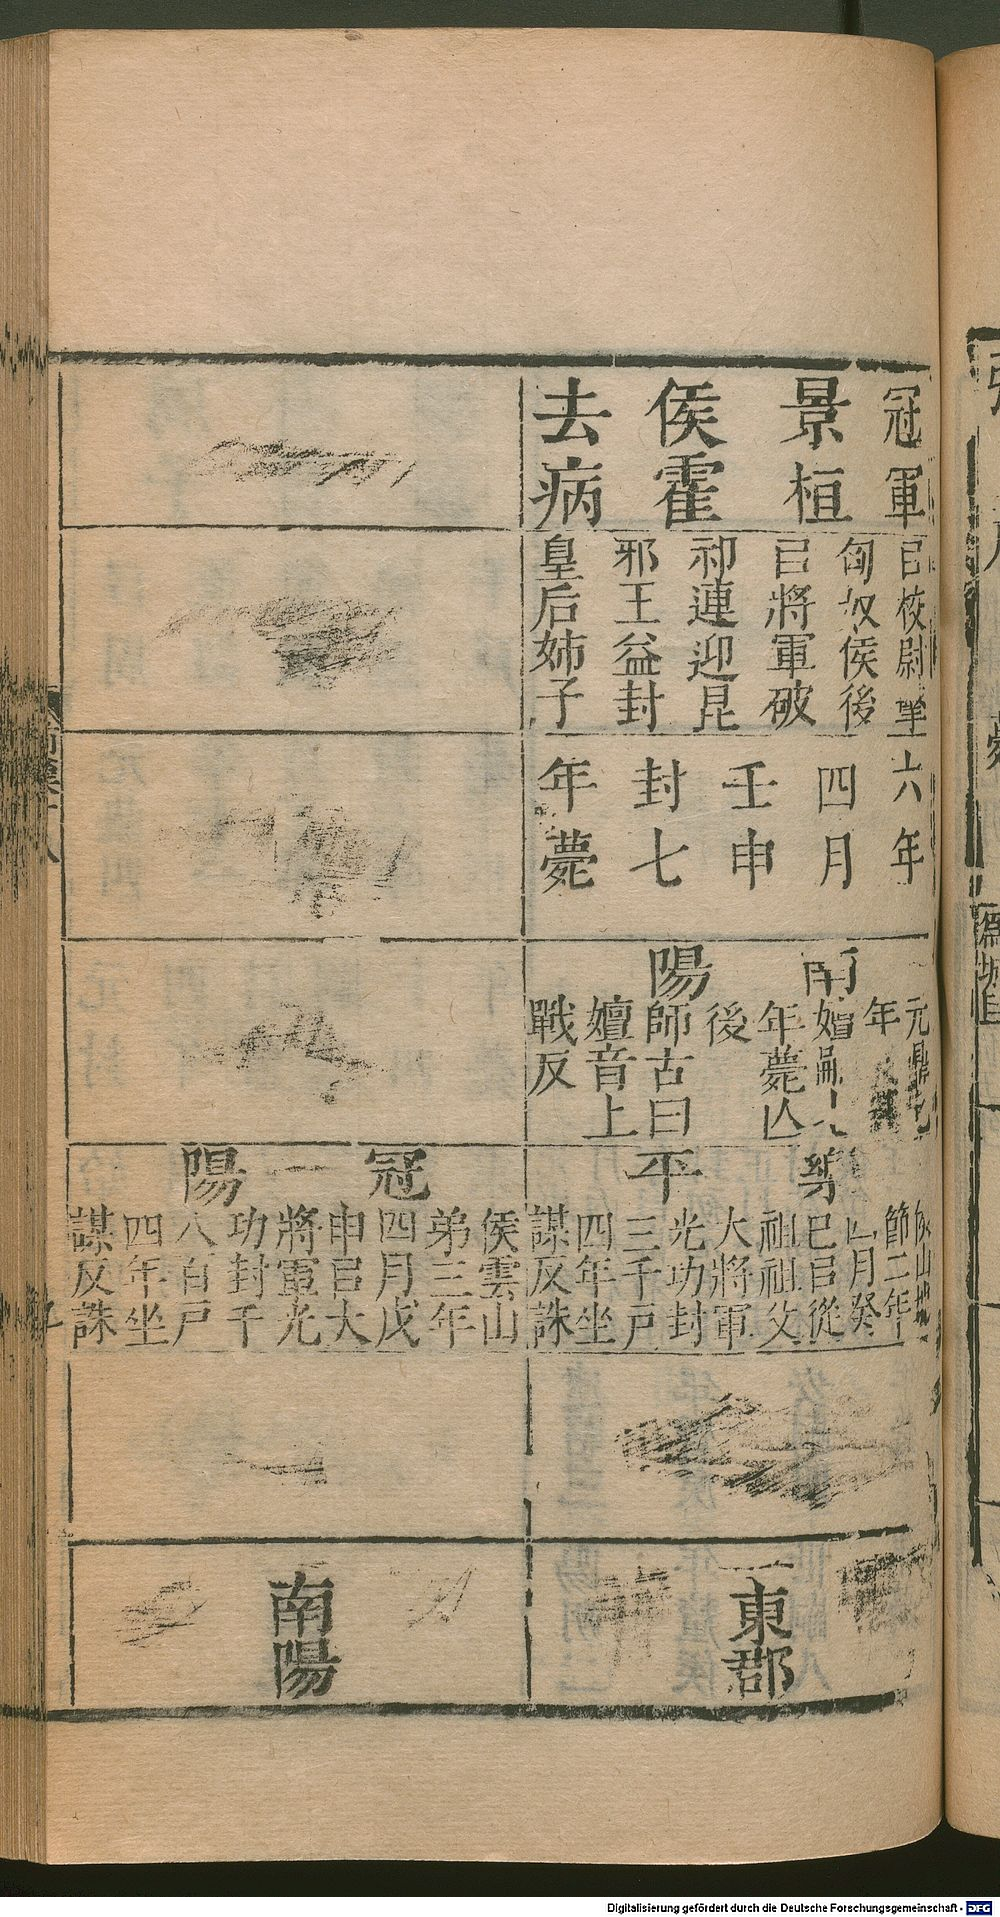 冠軍
景桓
侯霍
去病
㠯校尉擊
匈奴侯後
㠯將軍破
祁連迎昆
邪王益封
皇后姉子
六年
四月
壬申
封七
年薨
南
陽
元鼎
年
嬗
年薨亾
後
師古曰
嬗音上
戰反
樂
平
侯山地
節二年
四月癸
巳㠯從
祖祖父
大將軍
光功封
三千戸
四年坐
謀反誅
東郡
冠
陽
侯雲山
弟三年
四月戊
申㠯大
將軍光
功封千
八百戸
四年坐
謀反誅
南陽
Digitalisierung gefördert durch die Deutsche Forschungsgemeinschaft - DFG